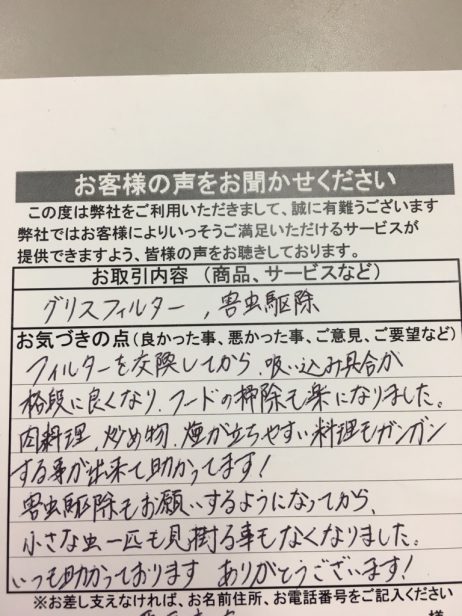 お客様の声をお聞かせください
この度は弊社をご利用いただきまして、誠に有難うございます
弊社ではお客様によりいっそうご満足いただけるサービスが
提供できますよう、皆様の声をお聴きしております。
お取引内容 (商品、サービスなど)
グリスフィルター , 害虫駆除
お気づきの点(良かった事、悪かった事、ご意見、ご要望など)
フィルターを交換してから、吸い込み具合が
格段に良くなり、フードの掃除も楽になりました。
肉料理、炒め物、煙が立ちやすい料理もガンガン
する事が出来て助かってます!
害虫駆除もお願いするようになってから、
小さな虫一匹も見掛る事もなくなりました。
いつも助かっております ありがとうございます!
※お差し支えなければ、お名前住所、お電話番号をご記入ください
様